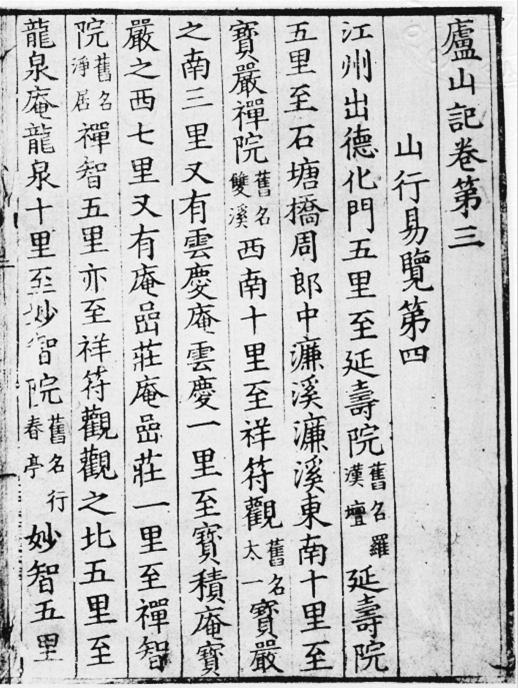 廬山記卷第三
山行易覽第四
江州出德化門五里至延壽院舊名羅漢壇延壽院
五里至石塘橋周郎中濂溪濂溪東南十里至
寶嚴禪院舊名雙溪西南十里至祥符觀舊名太一寶嚴
之南三里又有雲慶庵雲慶一里至寶積庵寶
嚴之西七里又有庵嵒莊庵嵒莊一里至禪智
院舊名淨居禪智五里亦至祥符觀觀之北五里至
龍泉庵龍泉十里至妙智院舊名行春亭妙智五里